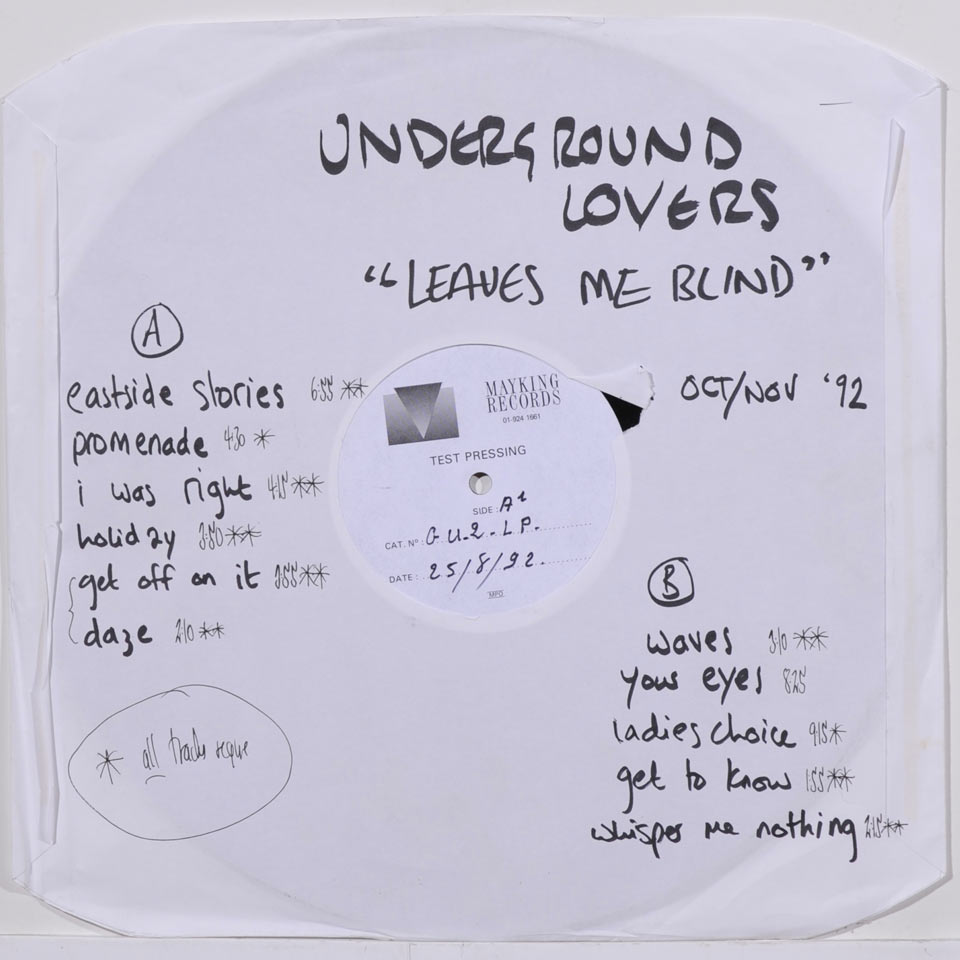 UNDERGROUND
LOVERS
“LEAVES ME BLIND”
OCT/NOV '92
A
eastside stories 6:55 **
promenade 4:30 *
i was right 4:15 **
holiday 3:50 **
get off on it 3:55 **
daze 2:10 **
* all tracks segue
MAYKING
RECORDS
01-924 1661
TEST PRESSING
SIDE: A¹
CAT. Nº: G.U.2.-L.P.
DATE: 25/8/92
MPO
B
waves 3:10 **
your eyes 8:25
ladies choice 9:15 *
get to know 1:55 **
whisper me nothing 2:15 **